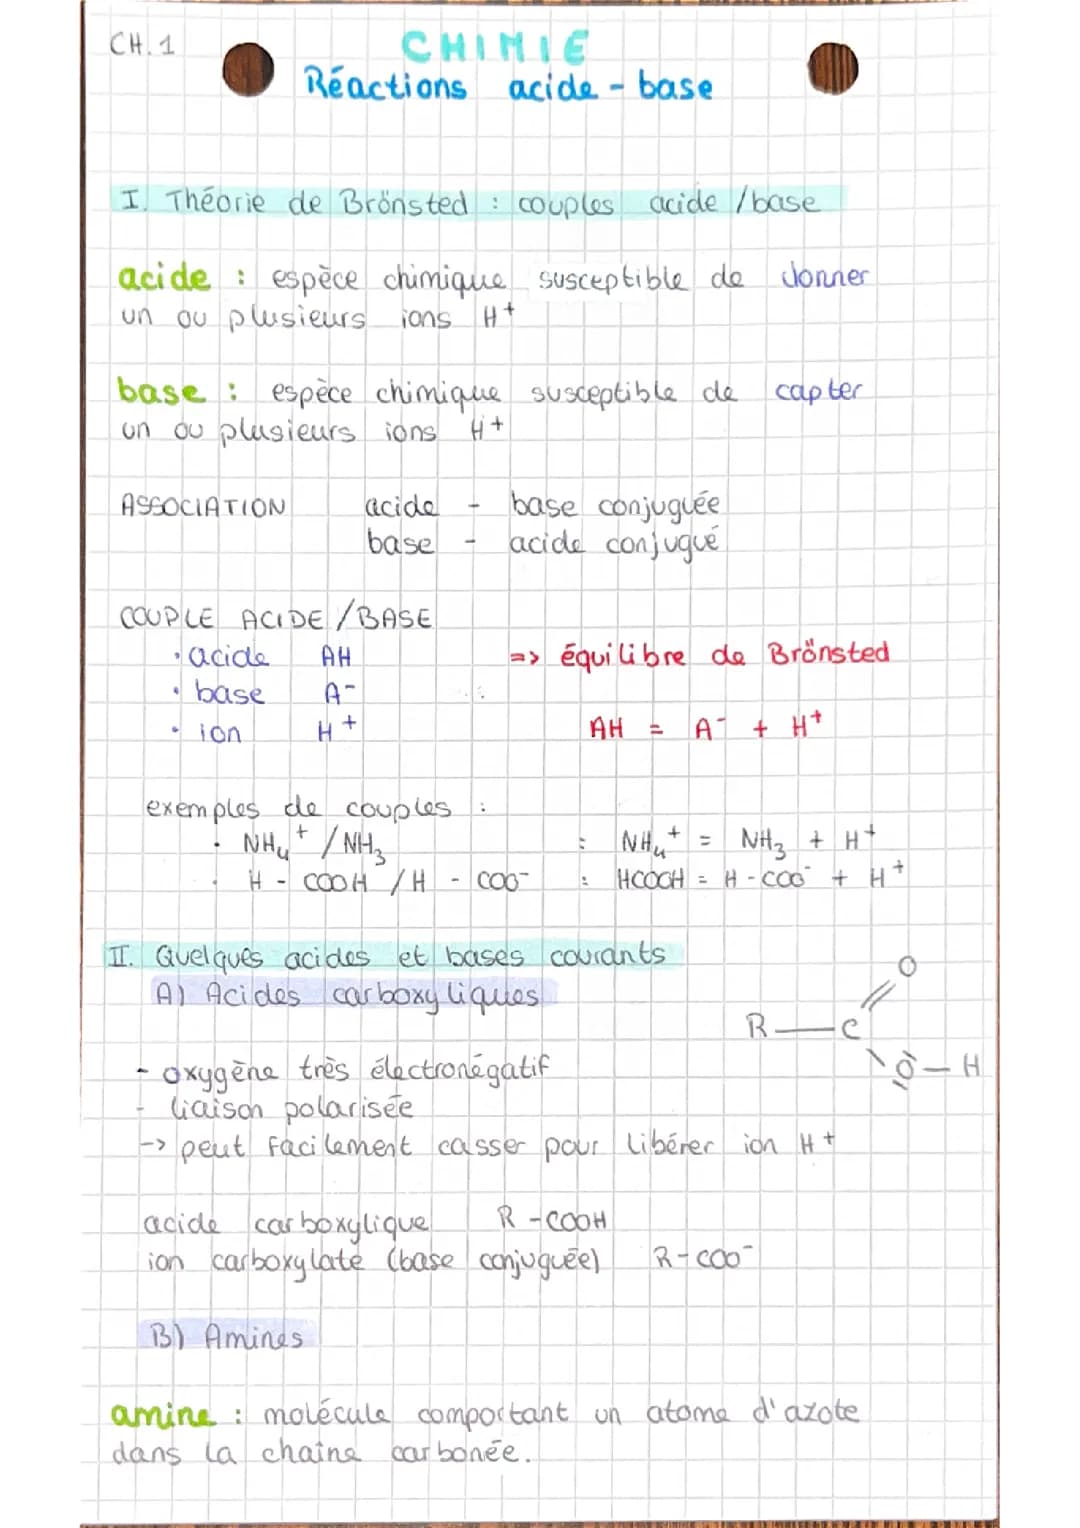 CH. 1
CHIMIE
Réactions acide - base
I. Théorie de Brönsted : couples acide / base
acide : espèce chimique susceptible de donner
un ou plusieurs ions H+
base : espèce chimique susceptible de capter
un ou plusieurs ions H+
ASSOCIATION acide - base conjuguée
base - acide conjugué
COUPLE ACIDE / BASE
· acide AH => équilibre de Brönsted
· base A⁻
· ion H⁺ AH = A⁻ + H⁺
exemples de couples :
· NH₄⁺ / NH₃ : NH₄⁺ = NH₃ + H⁺
· H - COOH / H - COO⁻ : HCOOH = H - COO⁻ + H⁺
II. Quelques acides et bases courants
A) Acides carboxyliques
O
R — C
O — H
- oxygène très électronégatif
- liaison polarisée
-> peut facilement casser pour libérer ion H+
acide carboxylique R - COOH
ion carboxylate (base conjuguée) R - COO⁻
B) Amines
amine : molécule comportant un atome d'azote
dans la chaîne carbonée.